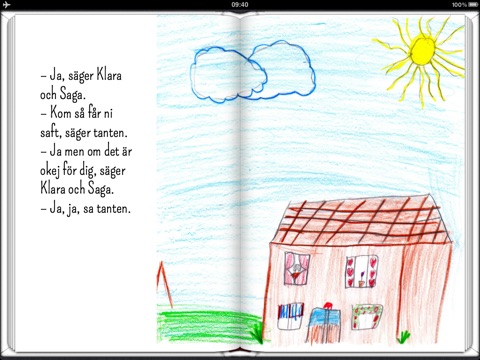 09:40
100%
– Ja, säger Klara
och Saga.
– Kom så får ni
saft, säger tanten.
– Ja men om det är
okej för dig, säger
Klara och Saga.
– Ja, ja, sa tanten.